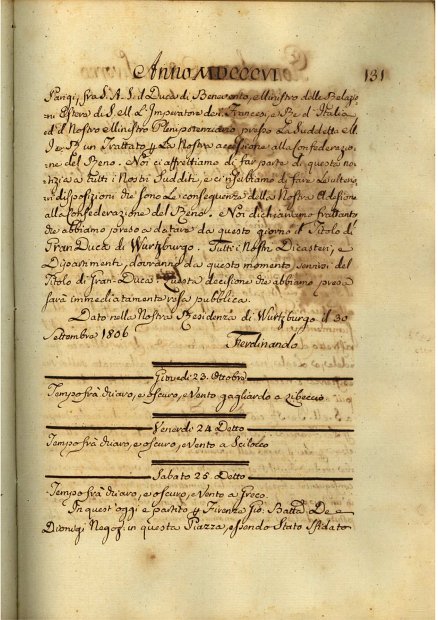 Anno MDCCCVI 131
Parigi, fra S. A. S. il Duca di Benevento, e Ministro delle Relazio
ni Estere di S. M. L'Imperatore de i Francesi, e Re d'Italia
ed il Nostro Ministro Plenipotenziario presso La Suddetta M.
I. e R. un Trattato p La Nostra accessione alla Confederazio
ne del Reno. Noi ci affrettiamo di far parte di questa no
tizia a tutti i Nostri Sudditi, e ci riserbiamo di fare le ulteriori
disposizioni che sono Le conseguenze della Nostra Adesione
alla Confederazione del Reno. e Noi dichiariamo frattanto
che abbiamo preso a datare da questo giorno il Titolo di
Gran Duca di Wurtzburgo. Tutti i Nostri Dicasteri, e
Dipartimenti, dovranno da questo momento servirsi del
Titolo di Gran-Duca. Questa decisione che abbiamo presa
sarà immediatamente resa pubblica.
Dato nella Nostra Residenza di Wurtzburgo il 30
Settembre 1806
Ferdinando
Giovedi 23. Ottobre
Tempo frà chiaro, e oscuro, e Vento gagliardo a Libeccio
Venerdi 24 Detto
Tempo frà chiaro, e oscuro, e Vento a Scilocco
Sabato 25 Detto
Tempo frà chiaro, e oscuro, e Vento a Greco.
In quest'oggi è partito p Firenze Gio: Batta De
Dionigi Negoz: in questa Piazza, essendo Stato Sfidato